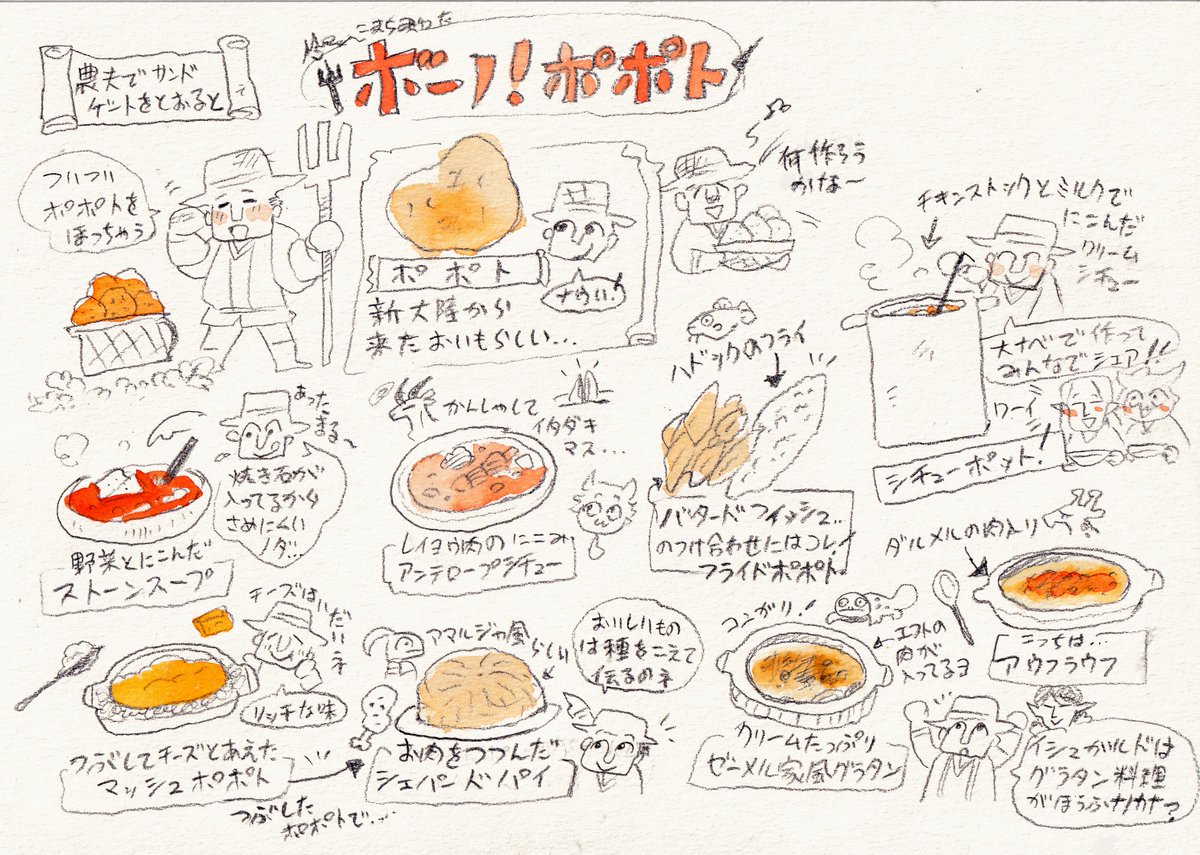 こまち
ボーノ!ポポト
農夫でサンド
ゲートをとおると
ついつい
ポポトを
ほっちゃう
ポポト
新大陸から
来たおいもらしい…
ナウい!
何作ろう
かな〜
チキンストックとミルクで
にこんだ
クリーム
シチュー
大ナベで作って
みんなでシェア!!
ワーイ
シチューポット!
あった
まる〜
焼き石が
入ってるから
さめにくい
ノダ…
野菜とにこんだ
ストーンスープ
かんしゃして
イタダキ
マス…
レイヨウ肉のにこみ
アンテロープシチュー
ハドックのフライ
バタードフィッシュ…
のつけ合わせにはコレ!
フライドポポト
ダルメルの肉入り
こっちは…
アウフラウフ
チーズは
リッチな味
つぶしてチーズとあえた
マッシュポポト
つぶした
ポポトで…
アマルジャ風
らしい
お肉をつつんだ
シェパードパイ
おいしいもの
は種をこえて
伝るのネ
コンガリ!
エフトの
肉が
入ってるヨ
クリームたっぷり
ゼーメル家風グラタン
イシュガルドは
グラタン料理
がほうふナノカナ?